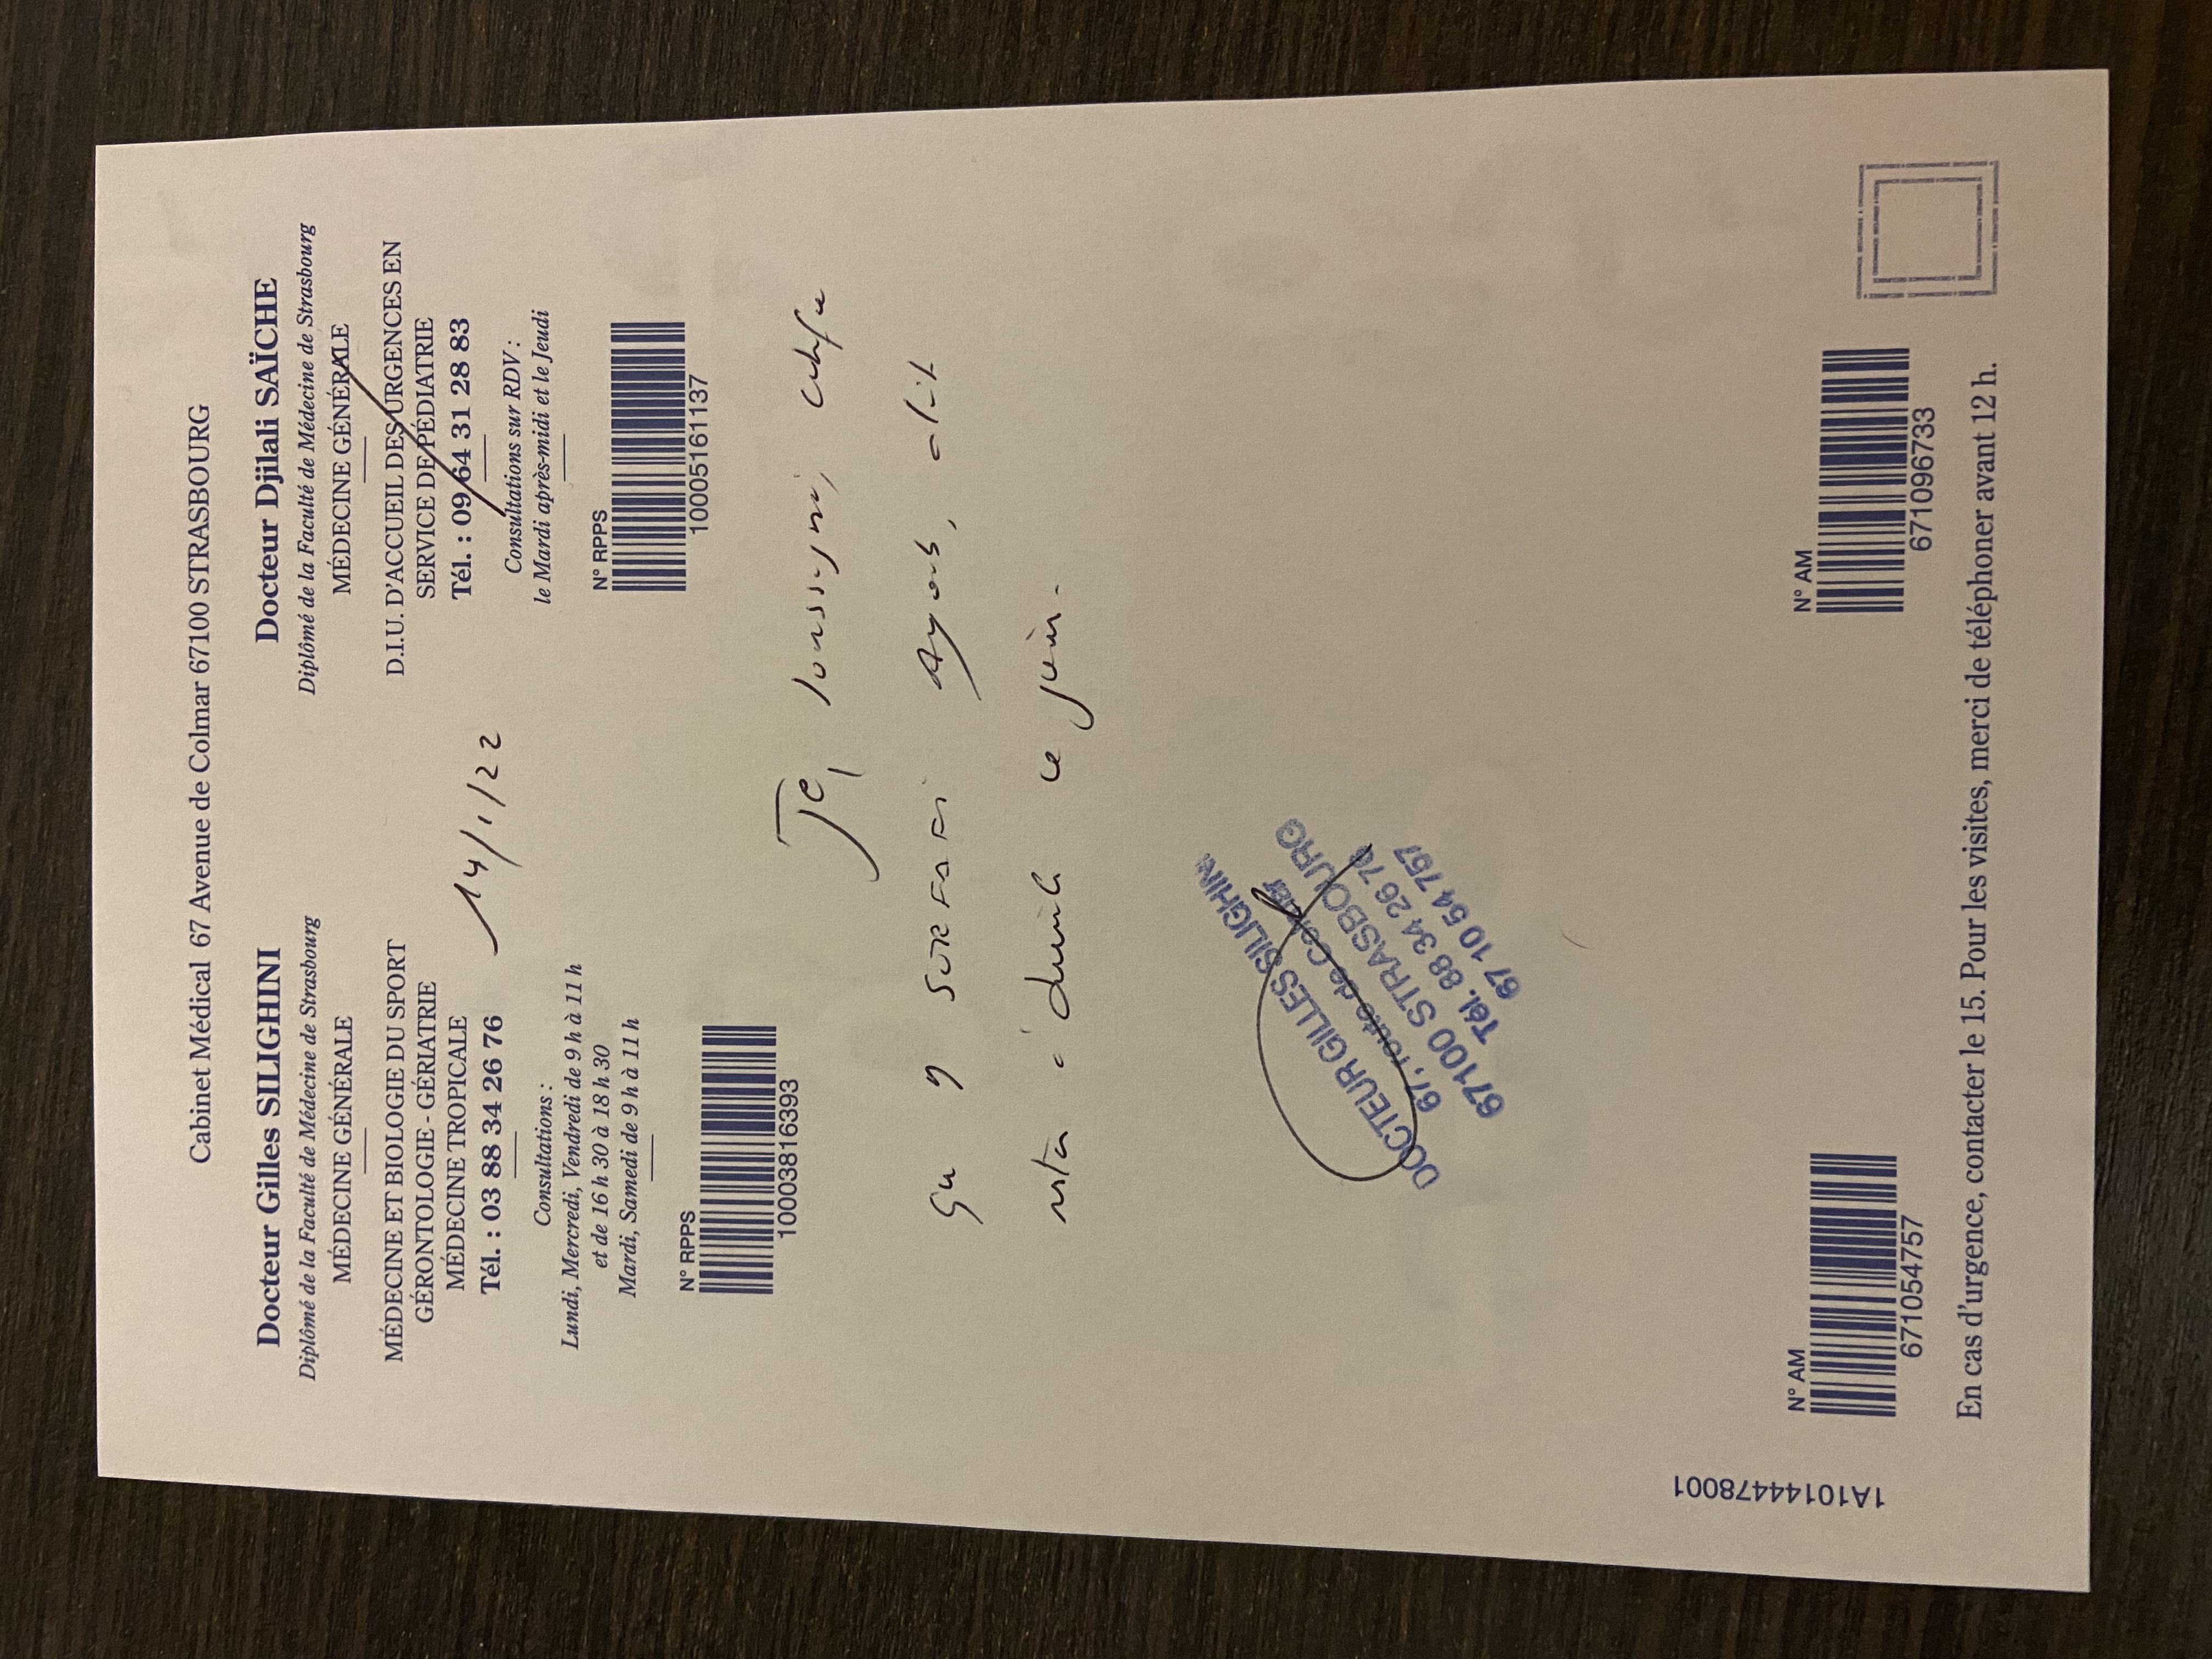 Cabinet Médical 67 Avenue de Colmar 67100 STRASBOURG
Docteur Gilles SILIGHINI
Diplômé de la Faculté de Médecine de Strasbourg
MÉDECINE GÉNÉRALE
MÉDECINE ET BIOLOGIE DU SPORT
GÉRONTOLOGIE - GÉRIATRIE
MÉDECINE TROPICALE
Tél. : 03 88 34 26 76
Consultations :
Lundi, Mercredi, Vendredi de 9 h à 11 h
et de 16 h 30 à 18 h 30
Mardi, Samedi de 9 h à 11 h
N° RPPS
10003816393
Docteur Djilali SAÏCHE
Diplômé de la Faculté de Médecine de Strasbourg
MÉDECINE GÉNÉRALE
D.I.U. D'ACCUEIL DES URGENCES EN
SERVICE DE PÉDIATRIE
Tél. : 09 64 31 28 83
Consultations sur RDV :
le Mardi après-midi et le Jeudi
N° RPPS
10005161137
14/1/22
Je, soussigné, certifie
que Ayoub, doit
rester à domicile ce jour.
DOCTEUR GILLES SILIGHINI
67, route de Colmar
67100 STRASBOURG
Tél. 88 34 26 76
67 10 54 757
1A1014478001
N° AM
671054757
N° AM
671096733
En cas d'urgence, contacter le 15. Pour les visites, merci de téléphoner avant 12 h.